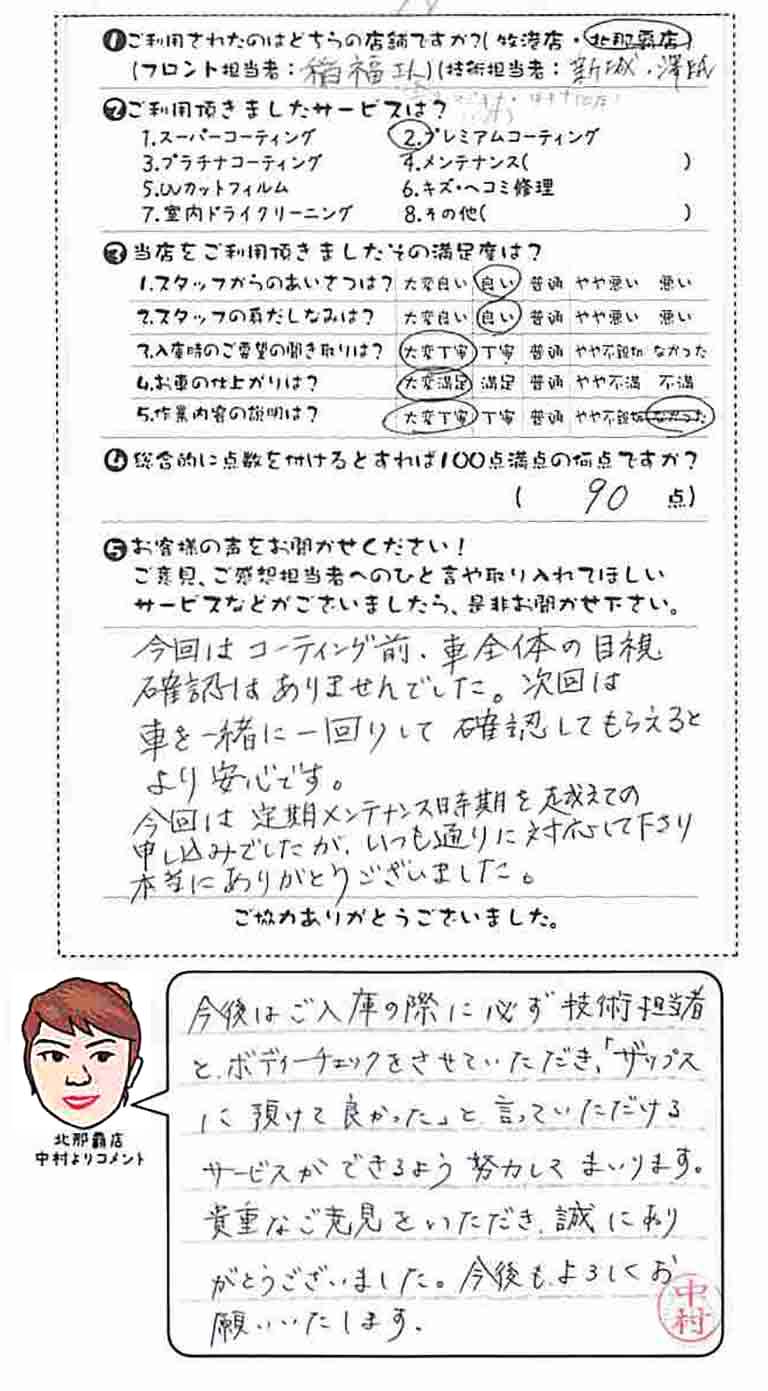 ❶ご利用されたのはどちらの店舗ですか?(牧港店・北那覇店)
(フロント担当者:稲福)(技術担当者:新城・澤岻
❷ご利用頂きましたサービスは?
1.スーパーコーティング 2.プレミアムコーティング
3.プラチナコーティング 4.メンテナンス( )
5.UVカットフィルム 6.キズ・ヘコミ修理
7.室内ドライクリーニング 8.その他( )
❸当店をご利用頂きましたその満足度は?
1.スタッフからのあいさつは? 大変良い 良い 普通 やや悪い 悪い
2.スタッフの身だしなみは? 大変良い 良い 普通 やや悪い 悪い
3.入庫時のご要望の聞き取りは? 大変丁寧 丁寧 普通 やや不親切 なかった
4.お車の仕上がりは? 大変満足 満足 普通 やや不満 不満
5.作業内容の説明は? 大変丁寧 丁寧 普通 やや不親切 なかった
❹総合的に点数を付けるとすれば100点満点の何点ですか?
( 90 点)
❺お客様の声をお聞かせください!
ご意見、ご感想担当者へのひと言や取り入れてほしい
サービスなどがございましたら、是非お聞かせ下さい。
今回はコーティング前、車全体の目視
確認はありませんでした。次回は
車を一緒に一回りして確認してもらえると
より安心です。
今回は定期メンテナンス時期を越えての
申し込みでしたが、いつも通りに対応して下さり
本当にありがとうございました。
ご協力ありがとうございました。
今後はご入庫の際に必ず技術担当者
と、ボディーチェックをさせていただき、「ザップス
に預けて良かった」と言っていただける
サービスができるよう努力してまいります。
貴重なご意見をいただき、誠にあり
がとうございました。今後も、よろしくお
願いいたします。
中村
北那覇店
中村よりコメント